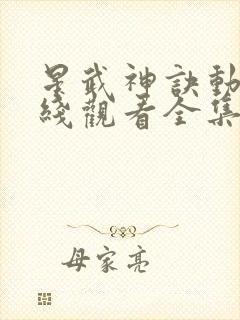 星武神訣動
綫觀看全集
母家亮